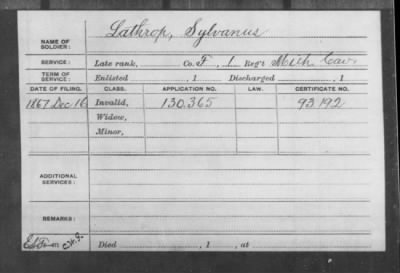 NAME OF SOLDIER: Lathrop, Sylvanus
SERVICE: Late rank, Co. F, 1 Reg't Mich Cav.
TERM OF SERVICE: Enlisted , 1 Discharged , 1
DATE OF FILING. CLASS. APPLICATION NO. LAW. CERTIFICATE NO.
1867 Dec 16 Invalid, 130.365 93192
Widow,
Minor,
ADDITIONAL SERVICES:
REMARKS:
Died , 1 , at